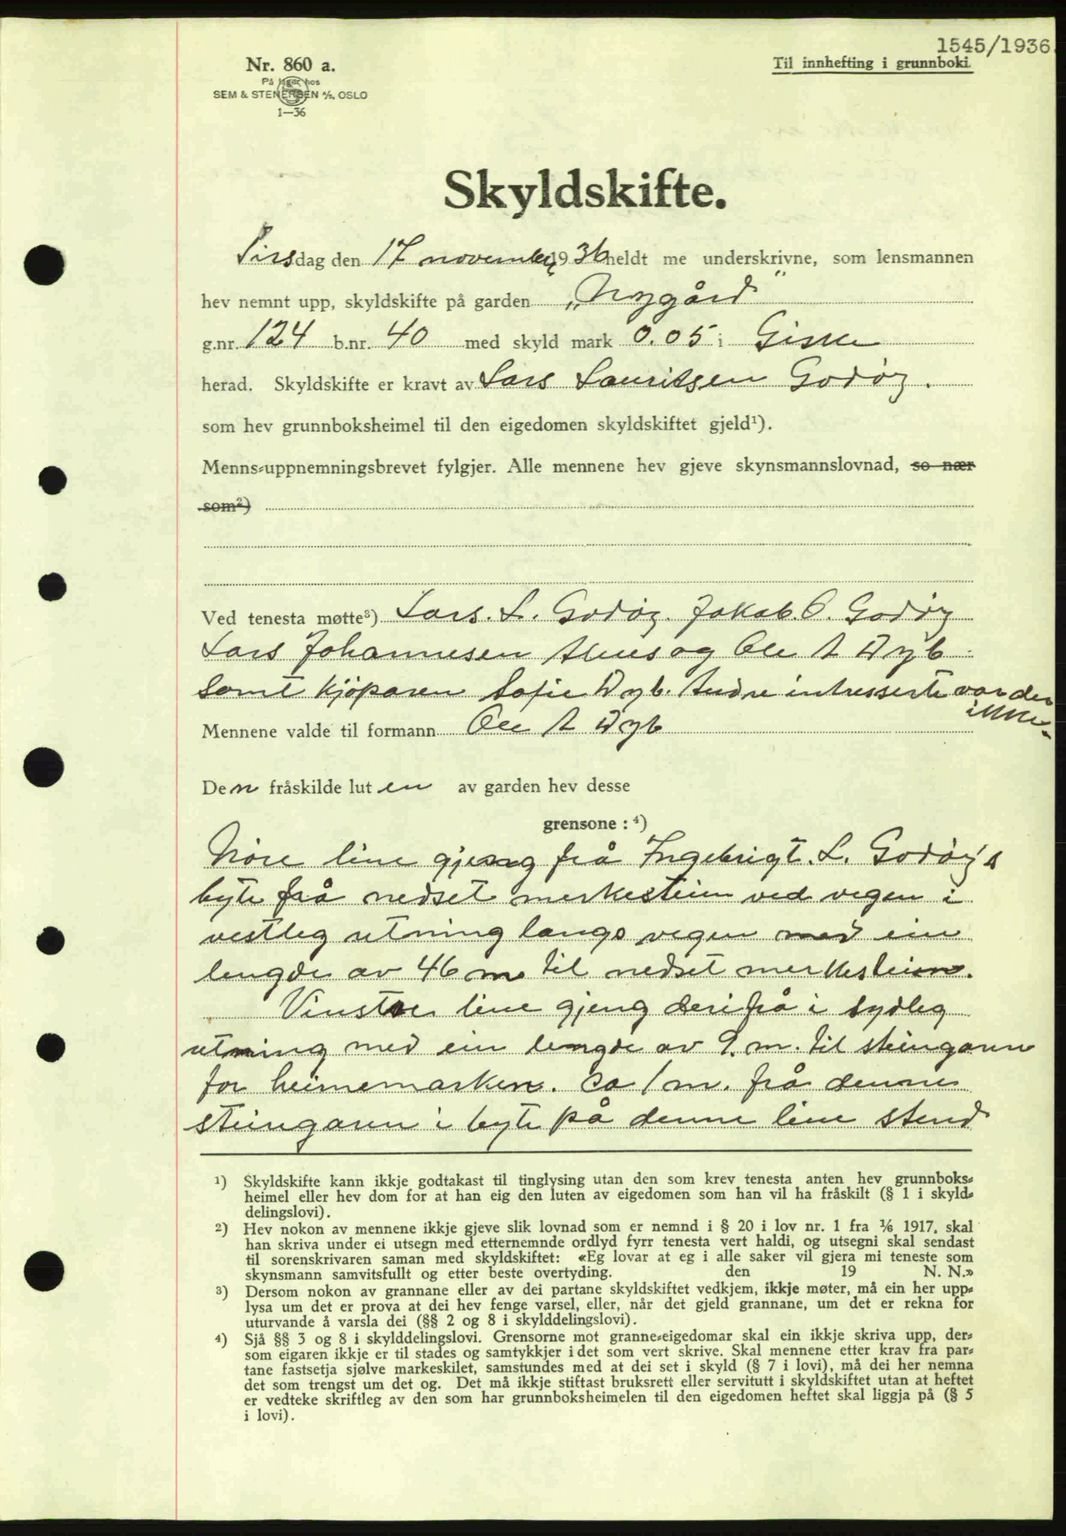 1545/1936.
Nr. 860 a.
Til innhefting i grunnboki.
På lager hos
SEM & STENERSEN A/S, OSLO
1—36
Skyldskifte.
Tirsdag den 17 november 1936 heldt me underskrivne, som lensmannen
hev nemnt upp, skyldskifte på garden „Nygård"
g.nr. 124 b.nr. 40 med skyld mark 0.05 i Giske
herad. Skyldskifte er kravt av Lars Lauritsen Godøy.
som hev grunnboksheimel til den eigedomen skyldskiftet gjeld¹).
Menns-uppnemningsbrevet fylgjer. Alle mennene hev gjeve skynsmannslovnad, so nær
som²)
Ved tenesta møtte³) Lars. L. Godøy. Jakob. O. Godøy
Lars Johannesen Alnes og Ole A Dyb
Samt kjøparen Sofie Dyb. Andre intresserte var der
ikke.
Mennene valde til formann Ole A Dyb
Den fråskilde lut en av garden hev desse
grensone : ⁴)
Nöre line gjeng frå Ingebrigt. L. Godøy's
byte frå nedset merkestein ved vegen i
vestleg retning langs vegen med ein
lengde av 46 m til nedset merkestein.
Vinstre line gjeng derifrå i sydleg
retning med ein lengde av 9. m. til steingaren
for heimemarken. Ca 1 m. frå denne
steingaren i byte på denne line stend
¹) Skyldskifte kann ikkje godtakast til tinglysing utan den som krev tenesta anten hev grunnboks-
heimel eller hev dom for at han eig den luten av eigedomen som han vil ha fråskilt (§ 1 i skyld-
delingslovi).
²) Hev nokon av mennene ikkje gjeve slik lovnad som er nemnd i § 20 i lov nr. 1 fra 1/6 1917, skal
han skriva under ei utsegn med etternemnde ordlyd fyrr tenesta vert haldi, og utsegni skal sendast
til sorenskrivaren saman med skyldskiftet: «Eg lovar at eg i alle saker vil gjera mi teneste som
skynsmann samvitsfullt og etter beste overtyding. den 19 N. N.»
³) Dersom nokon av grannane eller av dei partane skyldskiftet vedkjem, ikkje møter, må ein her upp-
lysa um det er prova at dei hev fenge varsel, eller, når det gjeld grannane, um det er rekna for
uturvande å varsla dei (§§ 2 og 8 i skylddelingslovi).
⁴) Sjå §§ 3 og 8 i skylddelingslovi. Grensorne mot granne-eigedomar skal ein ikkje skriva upp, der-
som eigaren ikkje er til stades og samtykkjer i det som vert skrive. Skal mennene etter krav fra par-
tane fastsetja sjølve markeskilet, samstundes med at dei set i skyld (§ 7 i lovi), må dei her nemna
det som trengst um det og. Det må ikkje stiftast bruksrett eller servitutt i skyldskiftet utan at heftet
er vedteke skriftleg av den som har grunnboksheimelen til den eigedomen heftet skal liggja på (§ 5
i lovi).